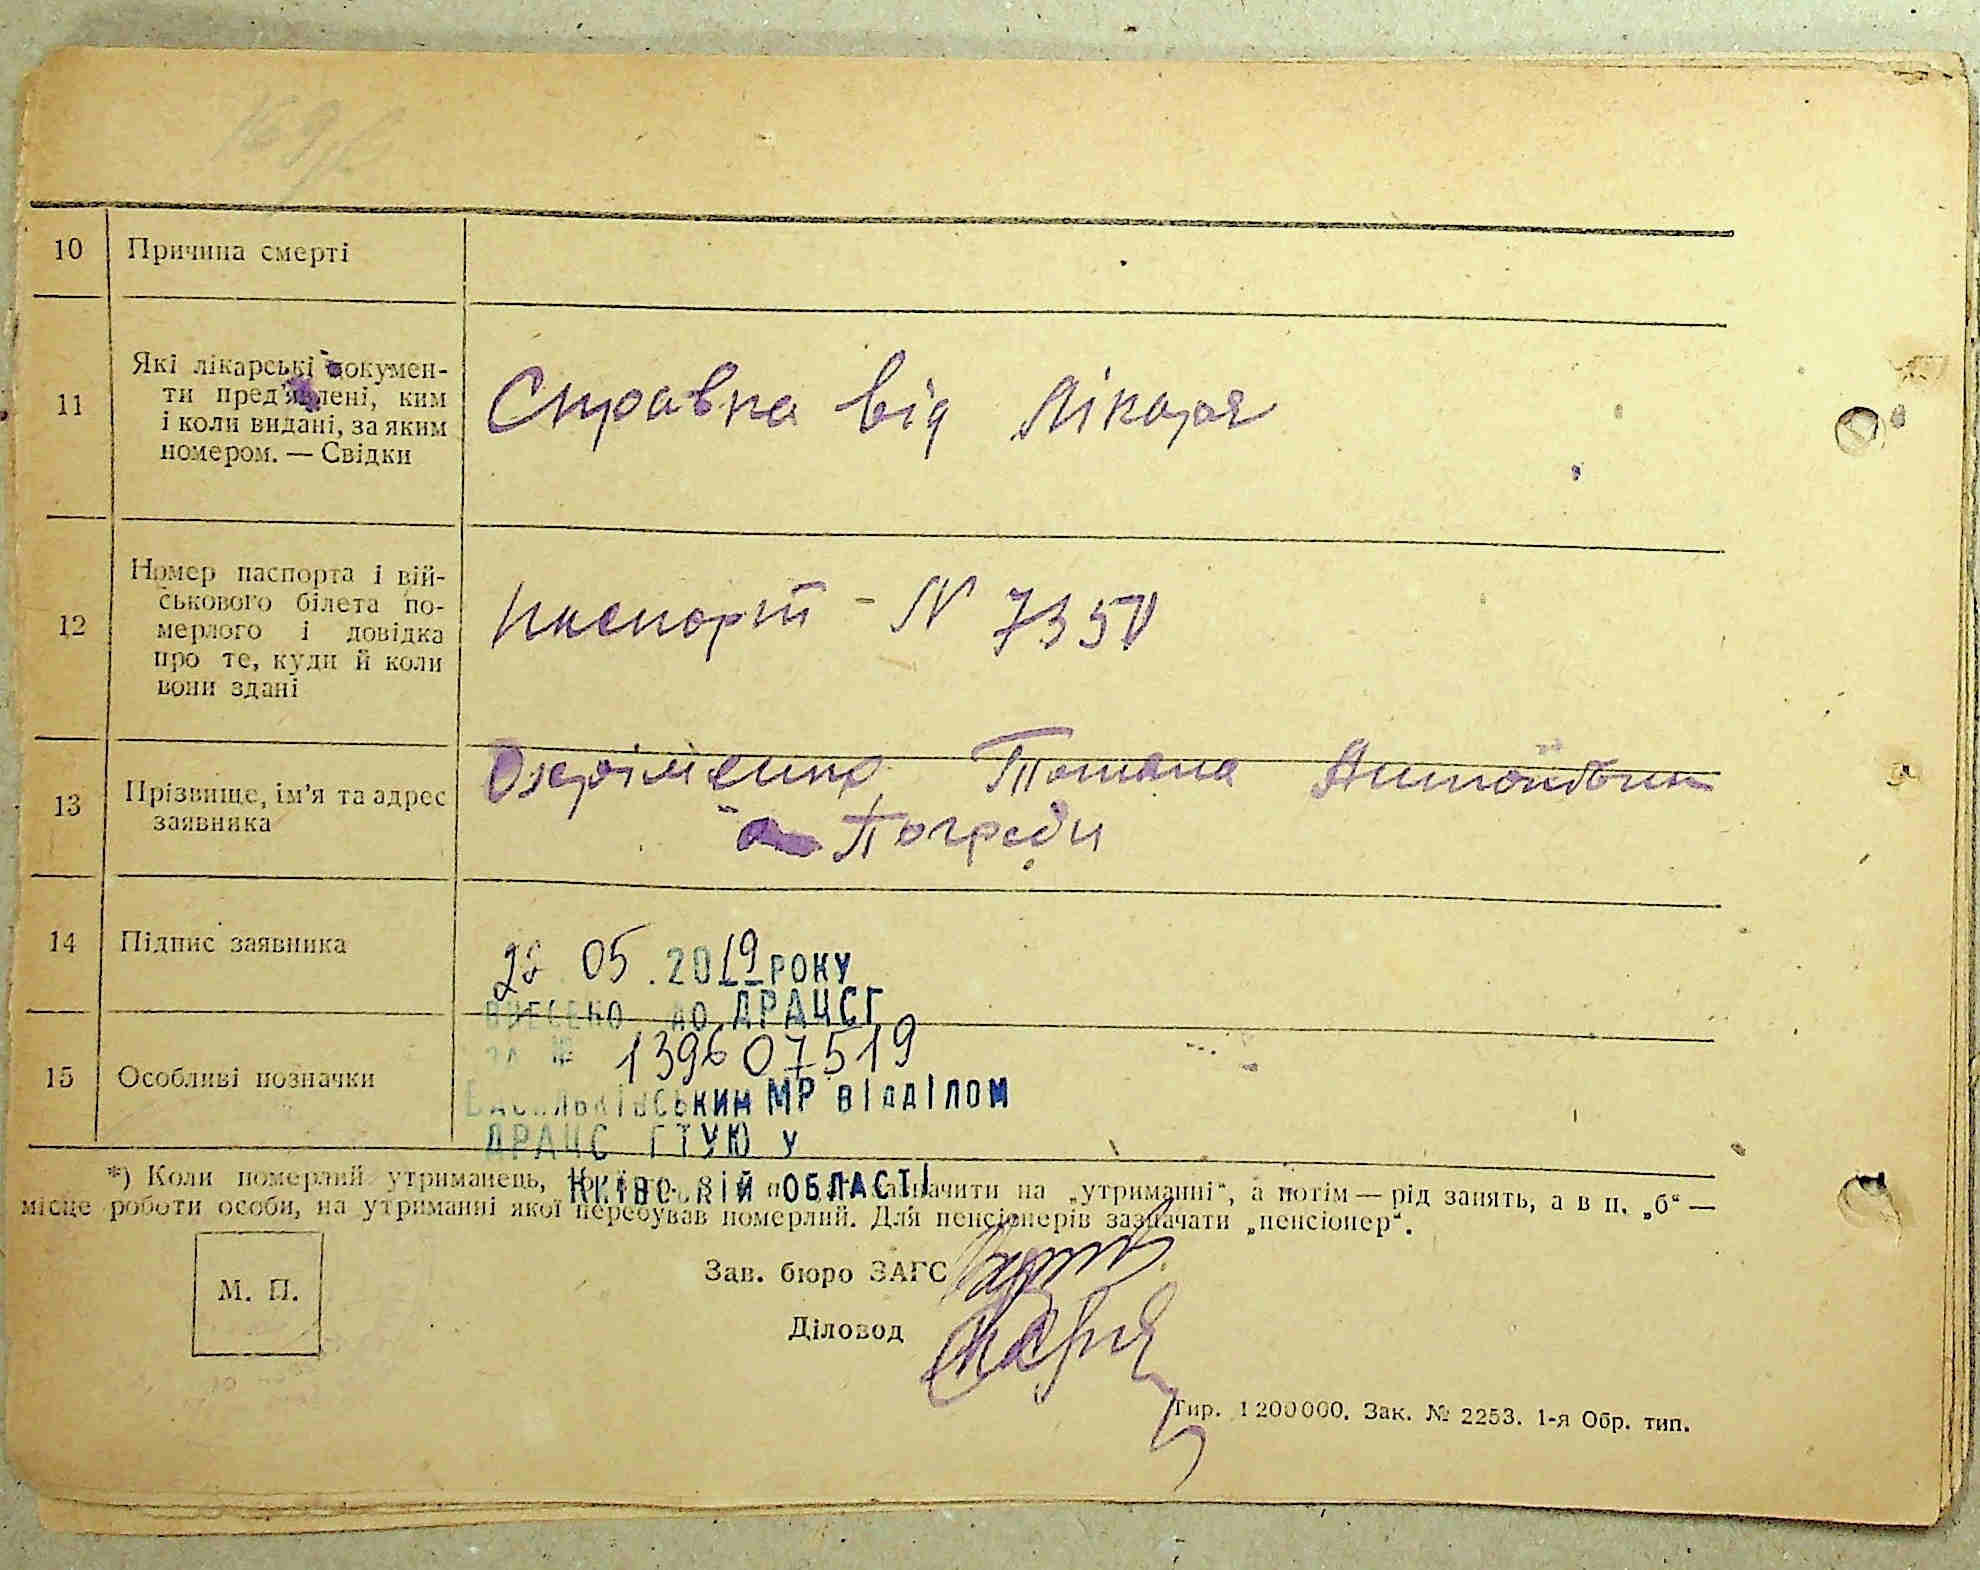 10 Причина смерті
11 Які лікарські докумен-
ти пред'явлені, ким
і коли видані, за яким
номером. — Свідки
Справка від лікаря
12 Номер паспорта і вій-
ськового білета по-
мерлого і довідка
про те, куди й коли
вони здані
паспорт - N 7350
13 Прізвище, ім'я та адрес
заявника
Охріменко Татяна Антонівна
Погреби
14 Підпис заявника
05.2019 РОКУ
ВНЕСЕНО ДО ДРАЦСГ
ЗА № 139607519
15 Особливі позначки
ВАСИЛЬКІВСЬКИМ МР ВІДДІЛОМ
ДРАЦС ГТУЮ У
КИЇВСЬКІЙ ОБЛАСТІ
*) Коли померлий утриманець, зазначити на „утриманні“, а потім — рід занять, а в п. „б“ —
місце роботи особи, на утриманні якої перебував померлий. Для пенсіонерів зазначати „пенсіонер“.
М. П.
Зав. бюро ЗАГС
Діловод
Тир. 1200000. Зак. № 2253. 1-я Обр. тип.